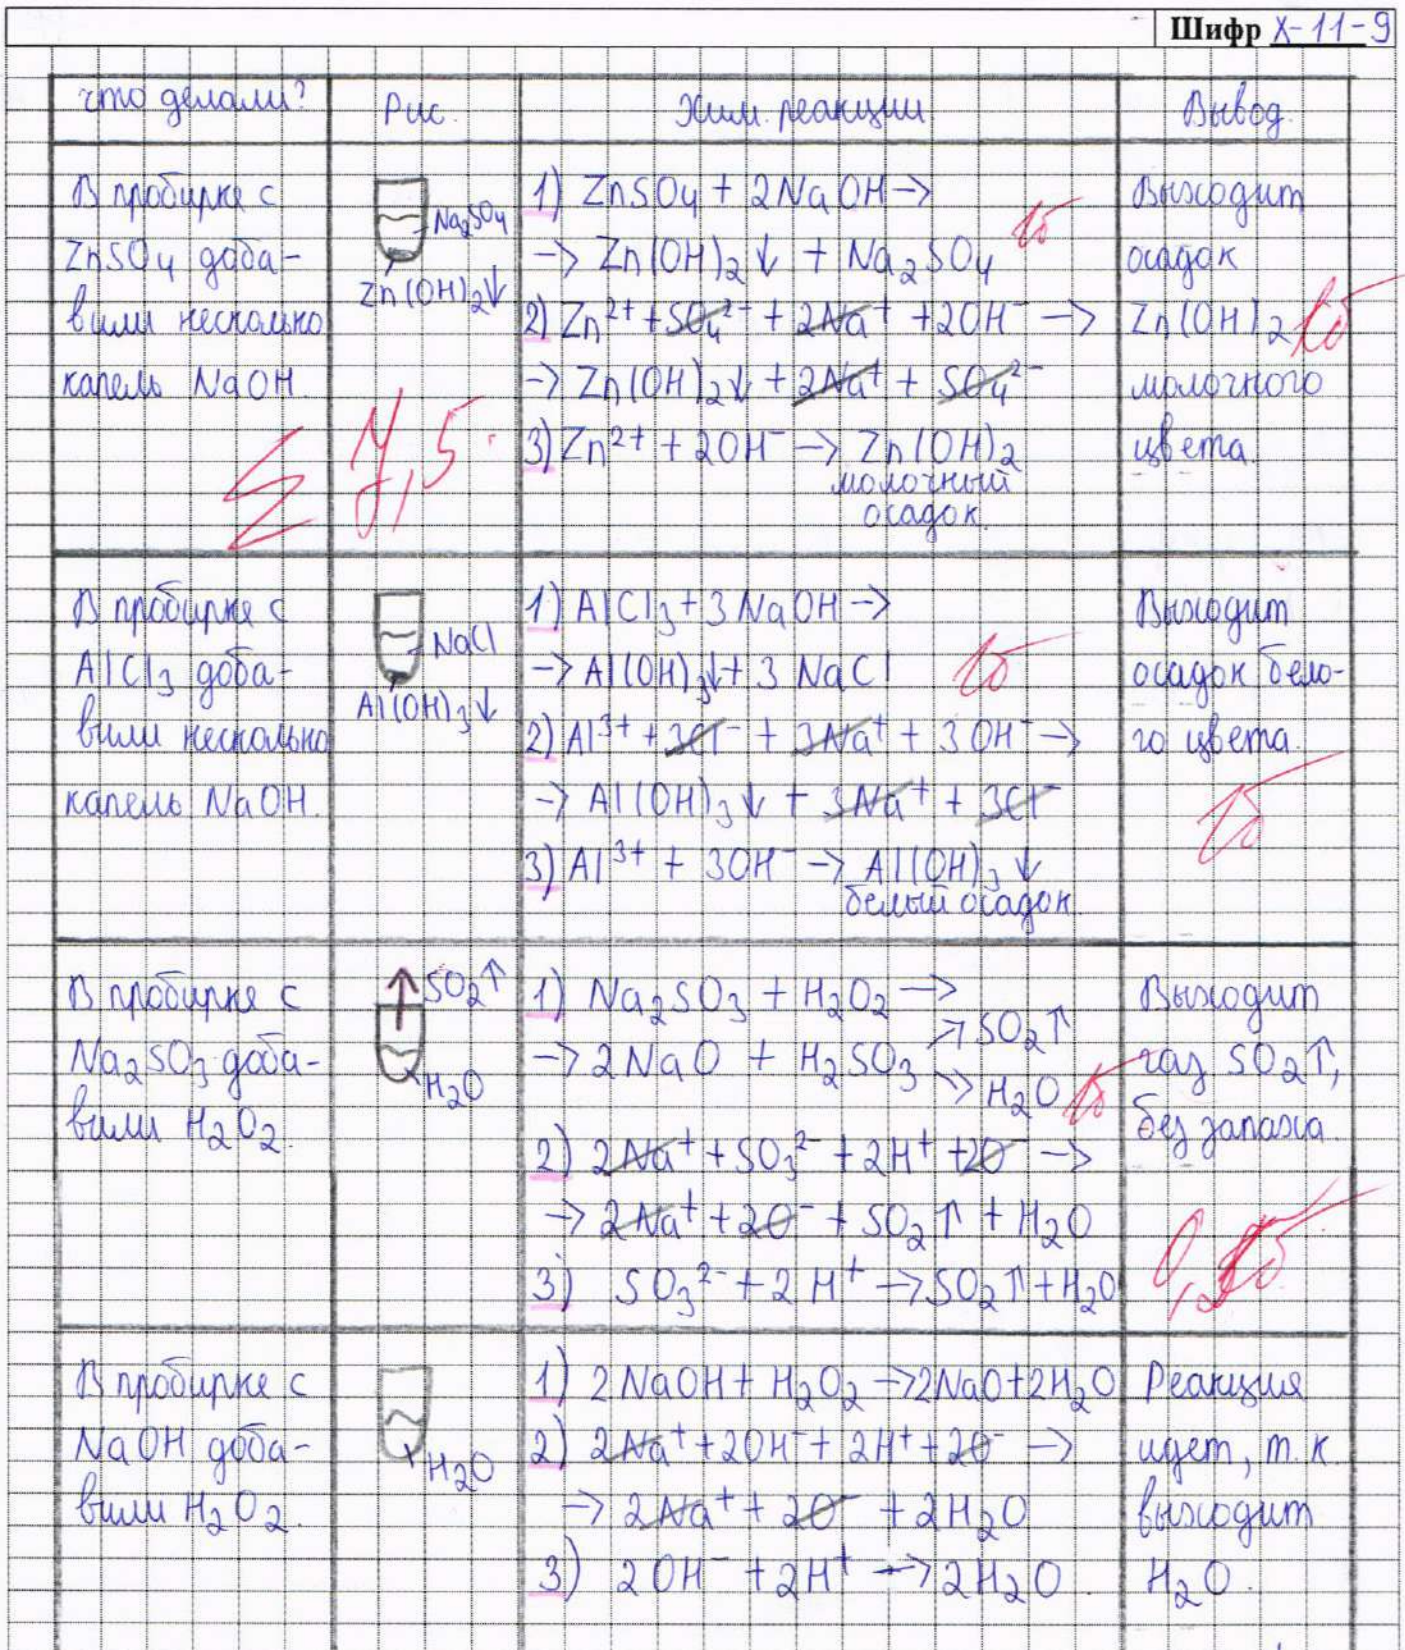 Шифр Х-11-9
что делали?
Рис.
Хим. реакции
Вывод.
В пробирке с
ZnSO₄ доба-
вили несколько
капель NaOH.
Na₂SO₄
Zn(OH)₂↓
1) ZnSO₄ + 2NaOH →
→ Zn(OH)₂↓ + Na₂SO₄
1б
2) Zn²⁺ + SO₄²⁻ + 2Na⁺ + 2OH⁻ →
→ Zn(OH)₂↓ + 2Na⁺ + SO₄²⁻
3) Zn²⁺ + 2OH⁻ → Zn(OH)₂
молочный
осадок.
Выходит
осадок
Zn(OH)₂
молочного
цвета.
1б
В пробирке с
AlCl₃ доба-
вили несколько
капель NaOH.
NaCl
Al(OH)₃↓
1) AlCl₃ + 3NaOH →
→ Al(OH)₃↓ + 3NaCl
1б
2) Al³⁺ + 3Cl⁻ + 3Na⁺ + 3OH⁻ →
→ Al(OH)₃↓ + 3Na⁺ + 3Cl⁻
3) Al³⁺ + 3OH⁻ → Al(OH)₃↓
белый осадок.
Выходит
осадок бело-
го цвета.
1б
В пробирке с
Na₂SO₃ доба-
вили H₂O₂.
SO₂↑
H₂O
1) Na₂SO₃ + H₂O₂ →
→ 2NaO + H₂SO₃ → SO₂↑
→ H₂O
1б
2) 2Na⁺ + SO₃²⁻ + 2H⁺ + 2O⁻ →
→ 2Na⁺ + 2O⁻ + SO₂↑ + H₂O
3) SO₃²⁻ + 2H⁺ → SO₂↑ + H₂O
Выходит
газ SO₂↑,
без запаха.
В пробирке с
NaOH доба-
вили H₂O₂.
H₂O
1) 2NaOH + H₂O₂ → 2NaO + 2H₂O
2) 2Na⁺ + 2OH⁻ + 2H⁺ + 2O⁻ →
→ 2Na⁺ + 2O⁻ + 2H₂O
3) 2OH⁻ + 2H⁺ → 2H₂O.
Реакция
идет, т.к.
выходит
H₂O.